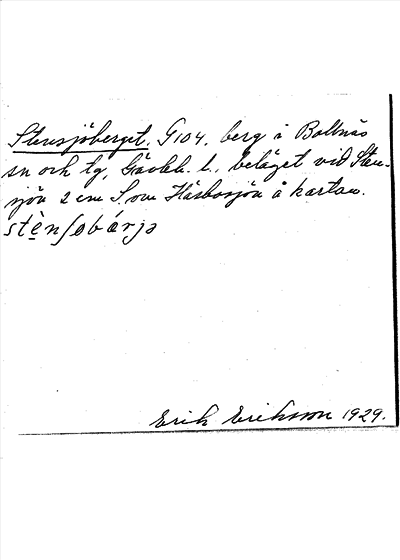 Stensjöberget. G104. berg i Bollnäs
sn och tg, Gävleb. l., beläget vid Sten-
sjön 2 cm S. om Häsbosjön å kartan.
stènʃøbárjə
Erik Eriksson 1929.